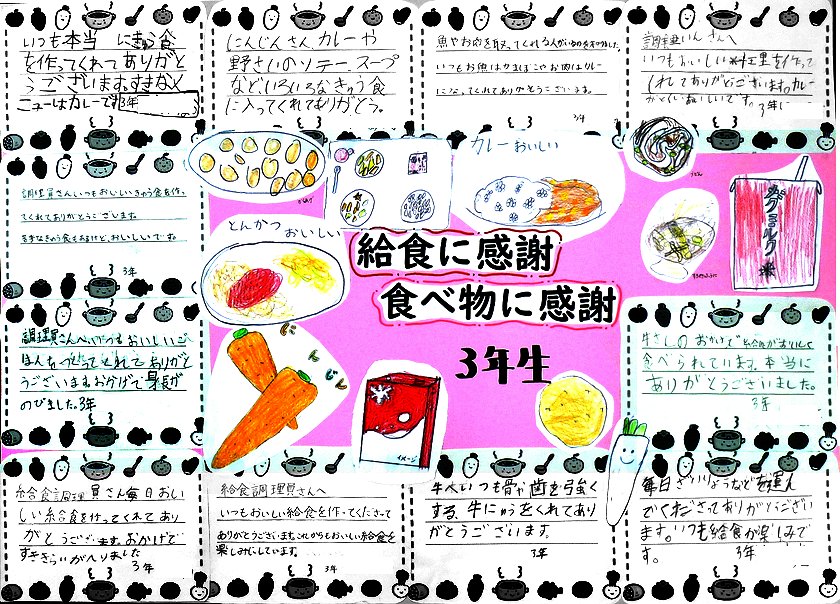 いつも本当 にきゅう食
を作ってくれてありがと
うございます。すきなメ
ニューはカレーです 3年
にんじんさん、カレーや
野さいのソテー、スープ
などいろいろなきゅう食
に入ってくれてありがとう。
魚やお肉を取ってくれる人がいるのを知りました。
いつもお魚はかまぼこやお肉はカレー
になってくれてありがとうございます。
3年
調理いんさんへ
いつもおいしい料理を作って
くれてありがとうございます。カレー
がとくいおいしいです。
3年
カレーおいしい
調理員さんいつもおいしいきゅう食を作っ
てくれてありがとうございます。
おいしいです。
3年
とんかつ おいしい
給食に感謝
食べ物に感謝
3年生
にんじん
ミルク
調理員さんへいつもおいしいご
はんをつくってくれてありがと
うございます。おかげで身長が
のびました。3年
牛さんのおかげで給食がおいしく
食べられています。本当に
ありがとうございました。
3年
給食調理員さん毎日おい
しい給食を作ってくれてあり
がとうございます。おかげで
すききらいがへりました
3年
給食調理員さんへ
いつもおいしい給食を作ってくださって
ありがとうございます。これからもおいしい給食を
楽しみにしています。
3年
牛へ いつも骨や歯を強く
する、牛にゅうをくれてあり
がとうございます。
3年
毎日 ざいりょうなどを運ん
でくださってありがとうござい
ます。いつも給食が楽しみで
す。 3年